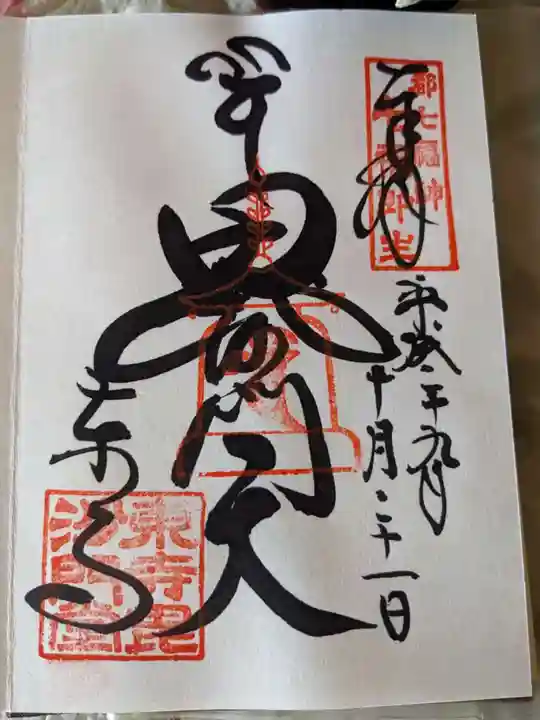 奉拝
都七福神
平成二十九年
十月二十一日
毘沙門天
東寺
東寺毘
沙門堂